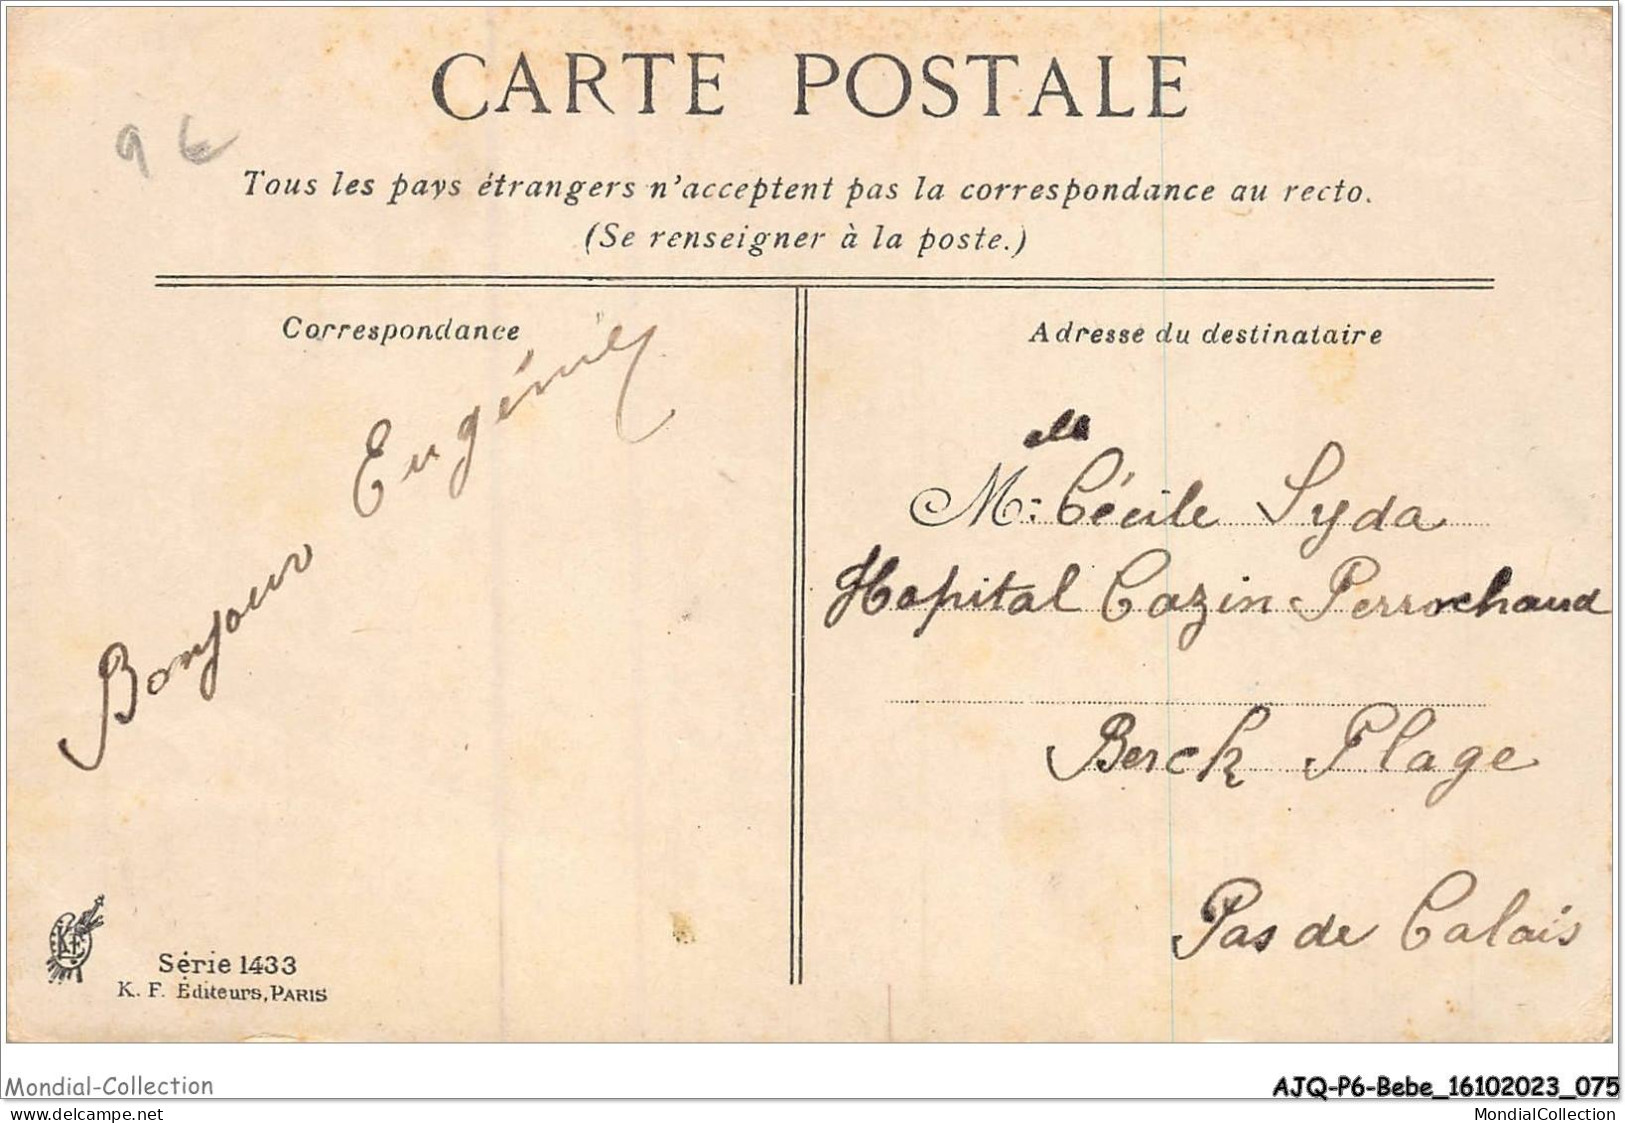 CARTE POSTALE
9 €
Tous les pays étrangers n'acceptent pas la correspondance au recto.
(Se renseigner à la poste.)
Correspondance
Adresse du destinataire
Bonjour Eugénie
Melle Cécile Syda
Hopital Cazin Perrochaud
Berck Plage
Pas de Calais
KF
Série 1433
K. F. Éditeurs, PARIS
Mondial-Collection
AJQ-P6-Bebe_16102023_075
www.delcampe.net
MondialCollection